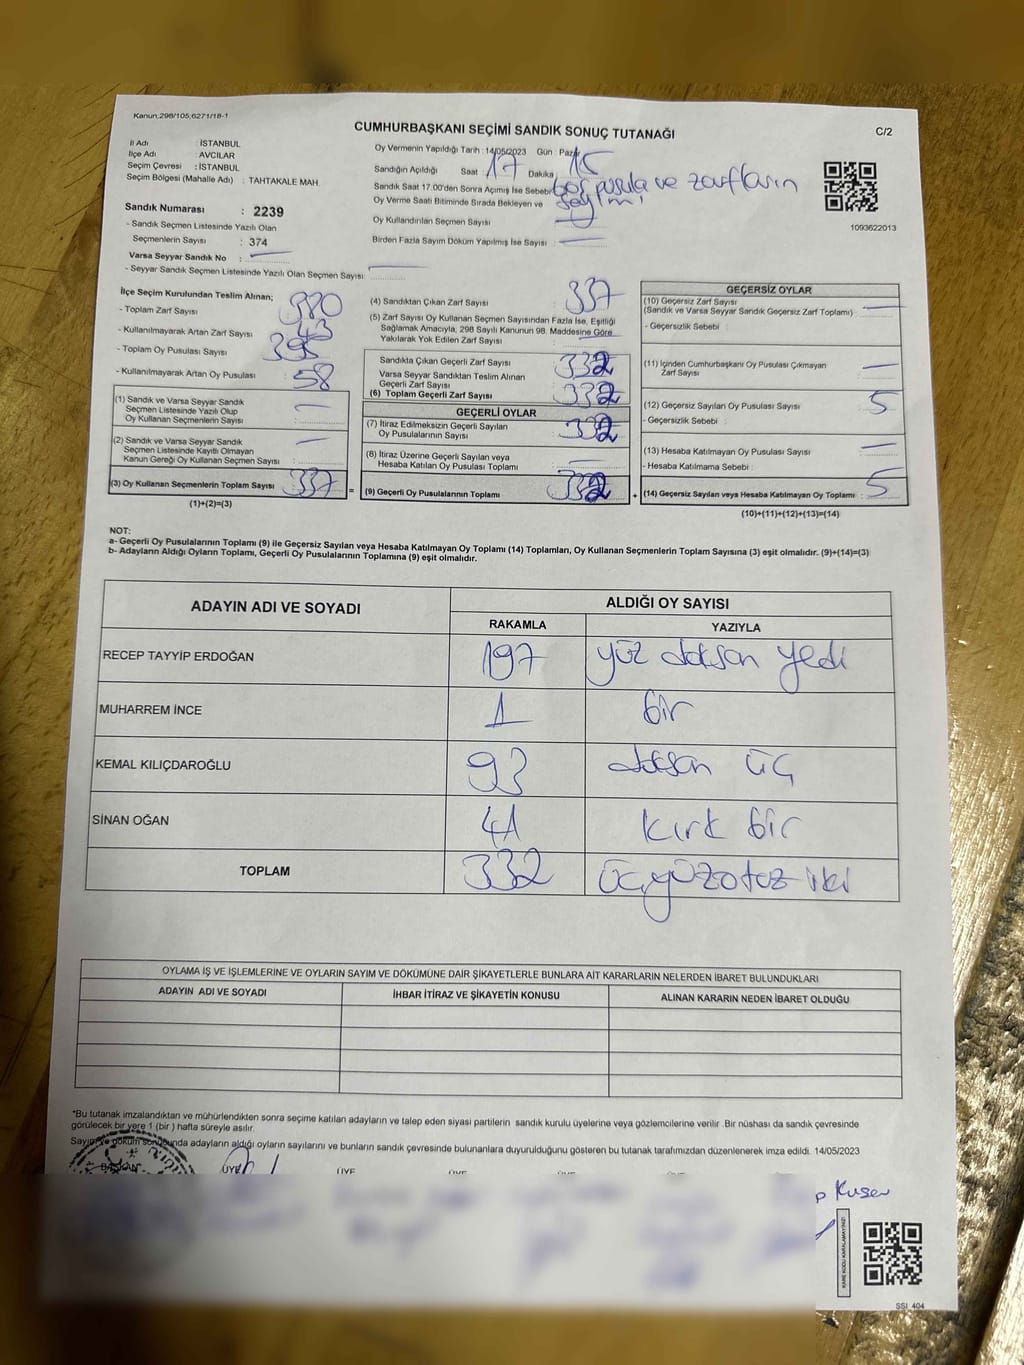 Kanun;298/105;6271/18-1
CUMHURBAŞKANI SEÇİMİ SANDIK SONUÇ TUTANAĞI
C/2
İl Adı : İSTANBUL
İlçe Adı : AVCILAR
Seçim Çevresi : İSTANBUL
Seçim Bölgesi (Mahalle Adı) : TAHTAKALE MAH.
Sandık Numarası : 2239
- Sandık Seçmen Listesinde Yazılı Olan
Seçmenlerin Sayısı : 374
Varsa Seyyar Sandık No :
- Seyyar Sandık Seçmen Listesinde Yazılı Olan Seçmen Sayısı :
Oy Vermenin Yapıldığı Tarih : 14/05/2023 Gün : Pazar
Sandığın Açıldığı Saat 17 Dakika : 15
Sandık Saat 17.00'den Sonra Açımış İse Sebebi boş pusula ve zarfların
Oy Verme Saati Bitiminde Sırada Bekleyen ve sayımı
Oy Kullandırılan Seçmen Sayısı
Birden Fazla Sayım Döküm Yapılmış İse Sayısı :
1093622013
İlçe Seçim Kurulundan Teslim Alınan;
- Toplam Zarf Sayısı : 380
- Kullanılmayarak Artan Zarf Sayısı : 43
- Toplam Oy Pusulası Sayısı 395
- Kullanılmayarak Artan Oy Pusulası : 58
(1) Sandık ve Varsa Seyyar Sandık
Seçmen Listesinde Yazılı Olup
Oy Kullanan Seçmenlerin Sayısı :
(2) Sandık ve Varsa Seyyar Sandık
Seçmen Listesinde Kayıtlı Olmayan
Kanun Gereği Oy Kullanan Seçmen Sayısı :
(3) Oy Kullanan Seçmenlerin Toplam Sayısı : 337
(1)+(2)=(3)
(4) Sandıktan Çıkan Zarf Sayısı : 337
(5) Zarf Sayısı Oy Kullanan Seçmen Sayısından Fazla İse, Eşitliği
Sağlamak Amacıyla, 298 Sayılı Kanunun 98. Maddesine Göre
Yakılarak Yok Edilen Zarf Sayısı :
Sandıkta Çıkan Geçerli Zarf Sayısı : 332
Varsa Seyyar Sandıktan Teslim Alınan
Geçerli Zarf Sayısı :
(6) Toplam Geçerli Zarf Sayısı : 332
GEÇERLİ OYLAR
(7) İtiraz Edilmeksizin Geçerli Sayılan
Oy Pusulalarının Sayısı : 332
(8) İtiraz Üzerine Geçerli Sayılan veya
Hesaba Katılan Oy Pusulası Toplamı :
= (9) Geçerli Oy Pusulalarının Toplamı : 332
GEÇERSİZ OYLAR
(10) Geçersiz Zarf Sayısı
(Sandık ve Varsa Seyyar Sandık Geçersiz Zarf Toplamı) :
- Geçersizlik Sebebi :
(11) İçinden Cumhurbaşkanı Oy Pusulası Çıkmayan
Zarf Sayısı :
(12) Geçersiz Sayılan Oy Pusulası Sayısı : 5
- Geçersizlik Sebebi :
(13) Hesaba Katılmayan Oy Pusulası Sayısı :
- Hesaba Katılmama Sebebi :
+ (14) Geçersiz Sayılan veya Hesaba Katılmayan Oy Toplamı : 5
(10)+(11)+(12)+(13)=(14)
NOT:
a- Geçerli Oy Pusulalarının Toplamı (9) ile Geçersiz Sayılan veya Hesaba Katılmayan Oy Toplamı (14) Toplamları, Oy Kullanan Seçmenlerin Toplam Sayısına (3) eşit olmalıdır. (9)+(14)=(3)
b- Adayların Aldığı Oyların Toplamı, Geçerli Oy Pusulalarının Toplamına (9) eşit olmalıdır.
ADAYIN ADI VE SOYADI
ALDIĞI OY SAYISI
RAKAMLA YAZIYLA
RECEP TAYYİP ERDOĞAN 197 yüz doksan yedi
MUHARREM İNCE 1 bir
KEMAL KILIÇDAROĞLU 93 doksan üç
SİNAN OĞAN 41 kırk bir
TOPLAM 332 üçyüzotuz iki
OYLAMA İŞ VE İŞLEMLERİNE VE OYLARIN SAYIM VE DÖKÜMÜNE DAİR ŞİKAYETLERLE BUNLARA AİT KARARLARIN NELERDEN İBARET BULUNDUKLARI
ADAYIN ADI VE SOYADI İHBAR İTİRAZ VE ŞİKAYETİN KONUSU ALINAN KARARIN NEDEN İBARET OLDUĞU
*Bu tutanak imzalandıktan ve mühürlendikten sonra seçime katılan adayların ve talep eden siyasi partilerin sandık kurulu üyelerine veya gözlemcilerine verilir. Bir nüshası da sandık çevresinde
görülecek bir yere 1 (bir ) hafta süreyle asılır.
Sayım ve döküm sonucunda adayların aldığı oyların sayılarını ve bunların sandık çevresinde bulunanlara duyurulduğunu gösteren bu tutanak tarafımızdan düzenlenerek imza edildi. 14/05/2023
BAŞKAN ÜYE ÜYE ÜYE ÜYE ÜYE
Kuser
KARE KODU KARALAMAYINIZ!
SSI_404